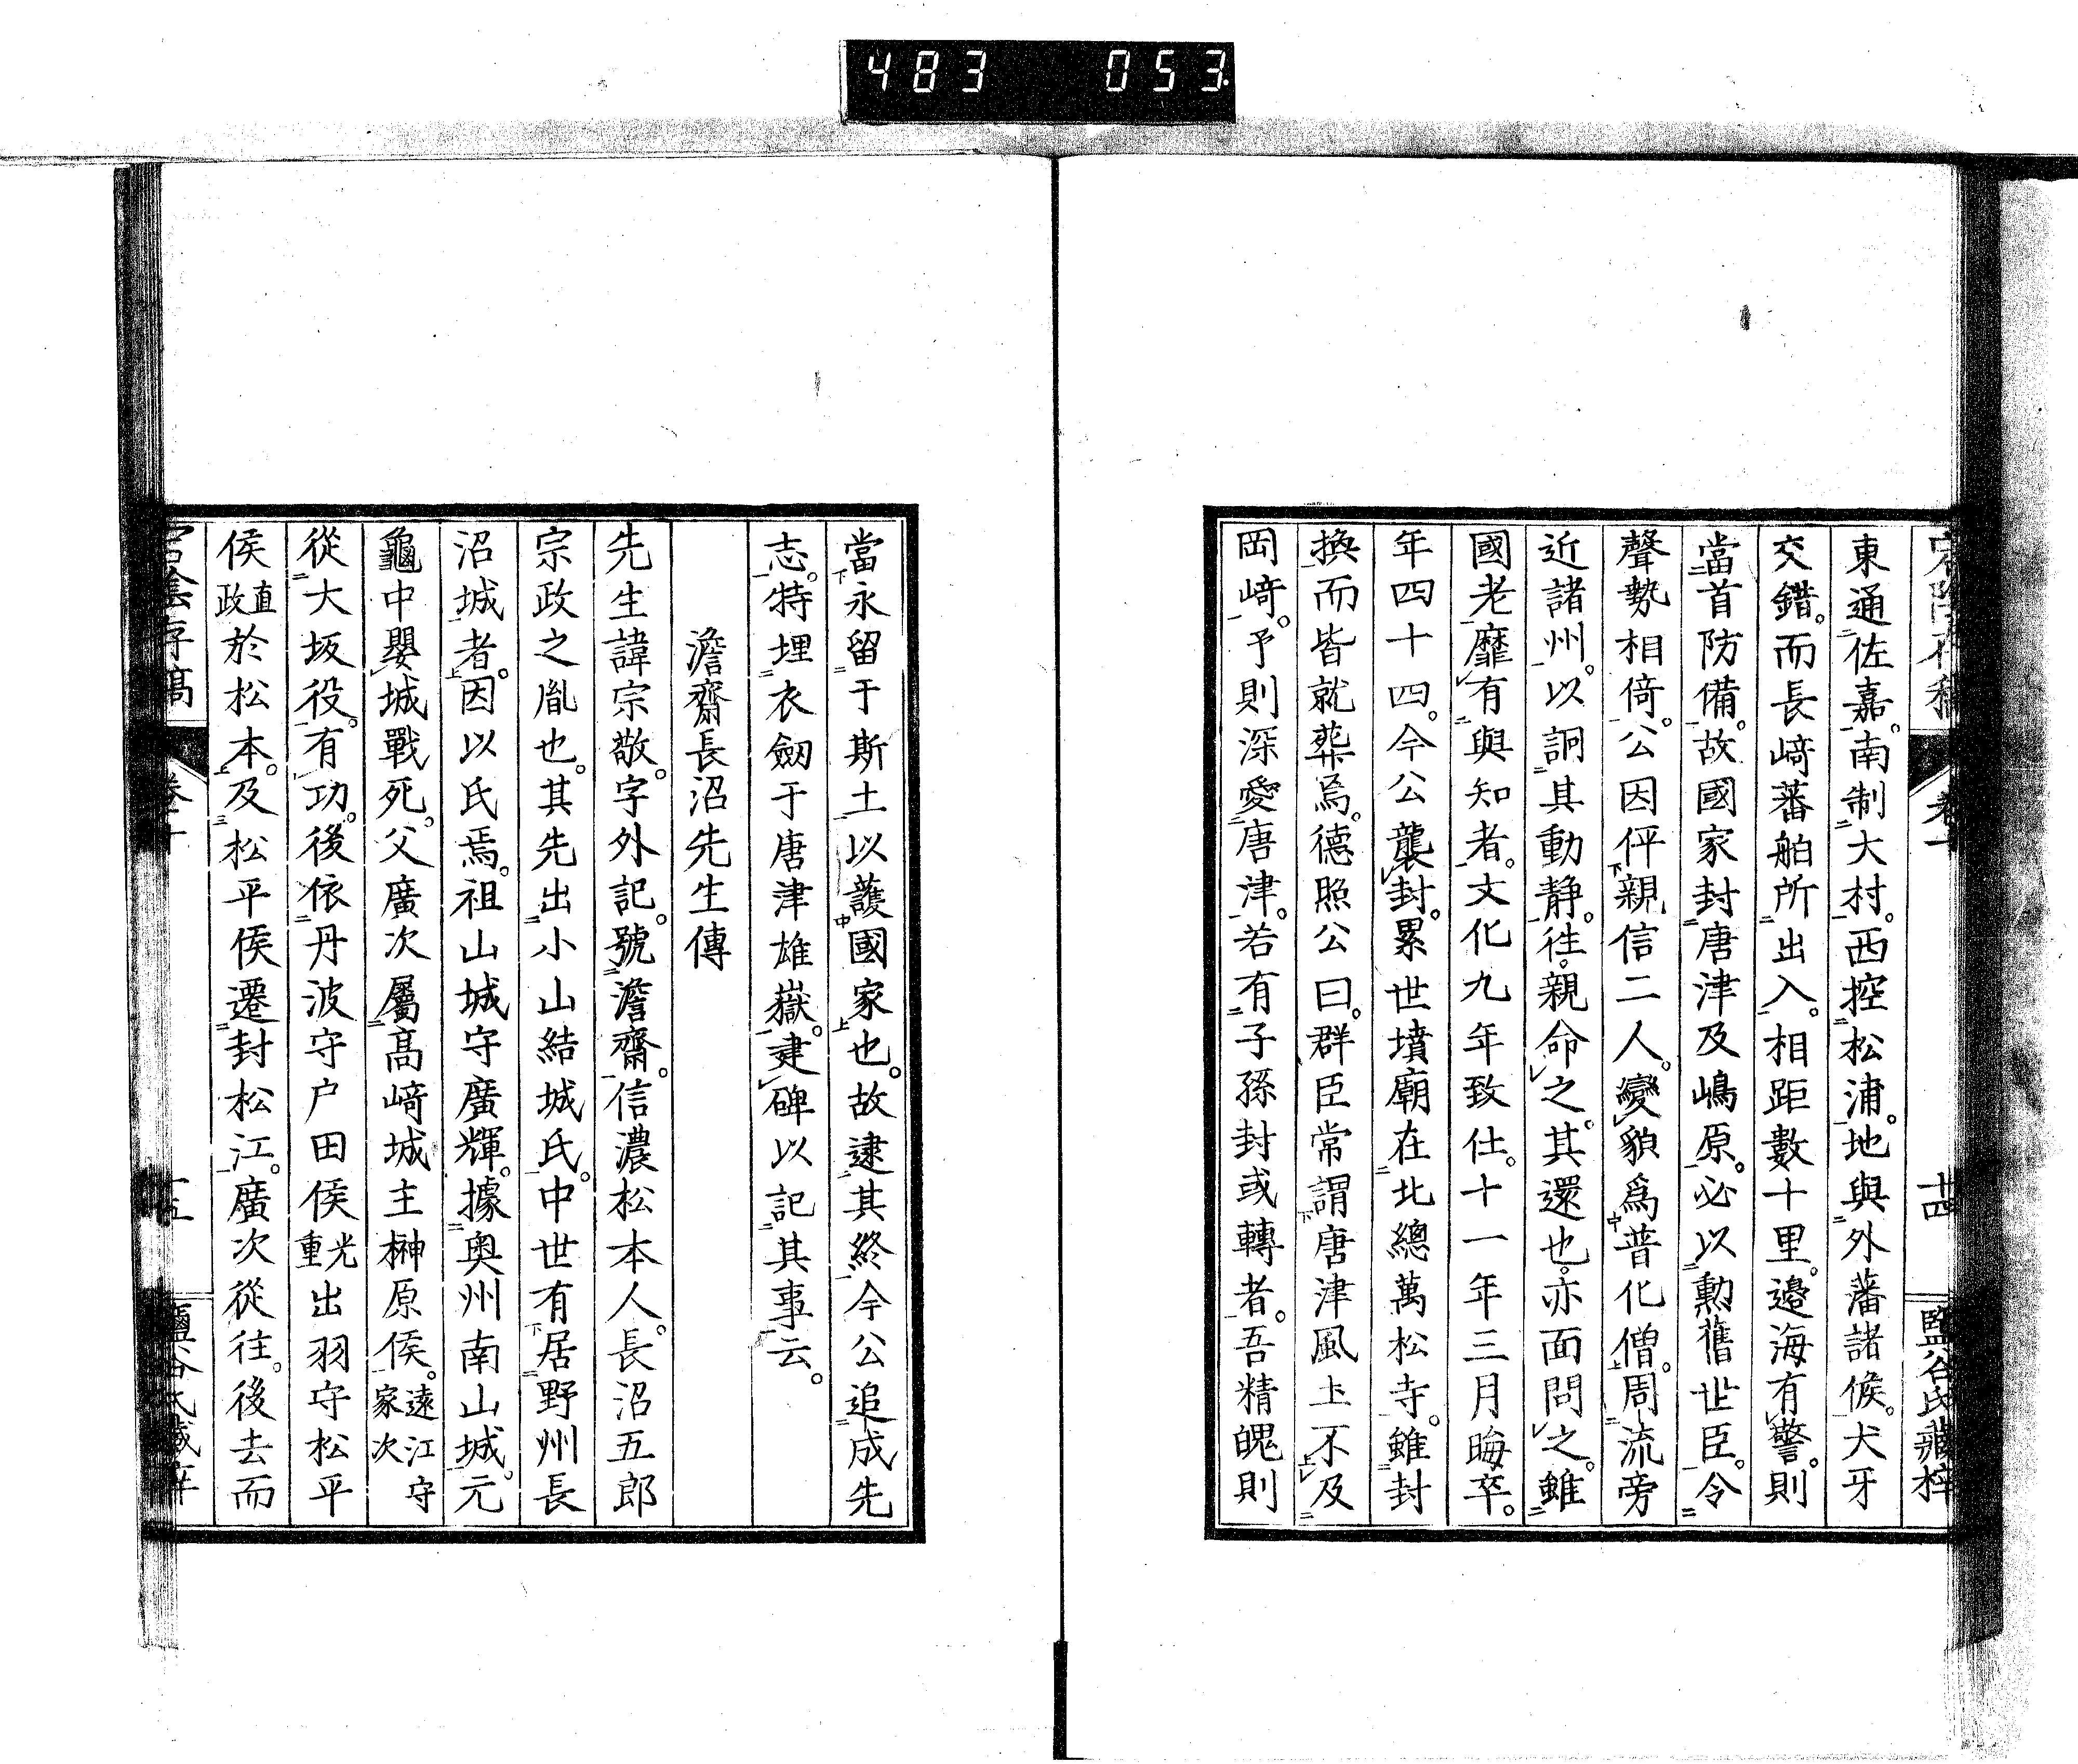 483 053
十四
鹽谷氏藏梓
東通佐嘉。南制大村。西控松浦。地與外藩諸侯。犬牙
交錯。而長﨑蕃舶所出入。相距數十里。邉海有警。則
當首防備。故國家封唐津及嶋原。必以勳舊世臣。令
聲勢相倚。公因伻親信二人。變貌爲普化僧。周流旁
近諸州。以詗其動静。往親命之。其還也。亦面問之。雖
國老靡有與知者。文化九年致仕。十一年三月晦卒。
年四十四。今公襲封。累世墳廟在北總萬松寺。雖封
換而皆就葬焉。德照公曰。群臣常謂唐津風土不及
岡﨑。予則深愛唐津。若有子孫封或轉者。吾精魄則
當永留于斯土以護國家也。故逮其終今公追成先
志。特埋衣劒于唐津雄嶽。建碑以記其事云。
澹齋長沼先生傳
先生諱宗敬。字外記。號澹齋。信濃松本人。長沼五郎
宗政之胤也。其先出小山結城氏。中世有居野州長
沼城者。因以氏焉。祖山城守廣輝。據奥州南山城。元
龜中嬰城戰死。父廣次屬高﨑城主榊原侯。遠江守家次
從大坂役。有功。後依丹波守戸田侯光重出羽守松平
侯直政於松本。及松平侯遷封松江。廣次從往。後去而
宕陰存稿
十五